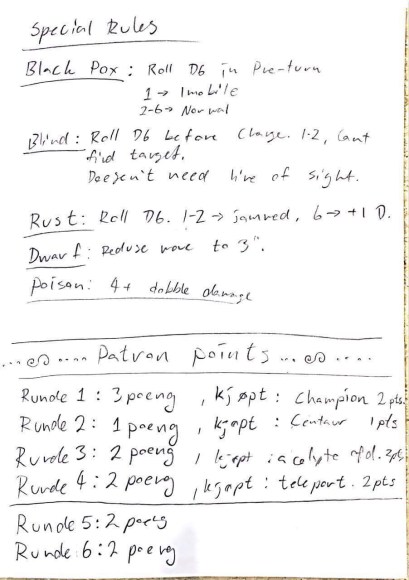 Special Rules
Black Pox : Roll D6 in Pre-turn
1 → Imobile
2-6 → Normal
Blind : Roll D6 before Charge. 1-2, Cant
find target.
Doesen't need line of sight.
Rust : Roll D6. 1-2 → jammed, 6 → +1 D.
Dwarf : Reduse move to 3".
Poison : 4+ dobble damage
Patron points
Runde 1 : 3 poeng , kjøpt : Champion 2 pts.
Runde 2 : 1 poeng , kjøpt : Centaur 1 pts
Runde 3 : 2 poeng , kjøpt : acolyte 2pts
Runde 4 : 2 poeng , kjøpt : teleport. 2 pts
Runde 5 : 2 poeng
Runde 6 : 2 poeng